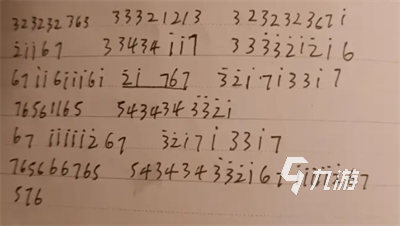 323232763 33321213 3232323671̇
2̇1̇1̇67 334341̇1̇7 333̇3̇21̇2̇1̇6
671̇1̇61̇1̇1̇61̇ 2̇1̇ 767 3̇2̇1̇71̇331̇7
76561165 5434343̇3̇2̇1̇
67 1̇1̇1̇1̇1̇2̇67 3̇2̇1̇71̇ 331̇7
765666765 5434343̇3̇2̇1̇67 1̇1̇1̇1̇1̇67
576
九游